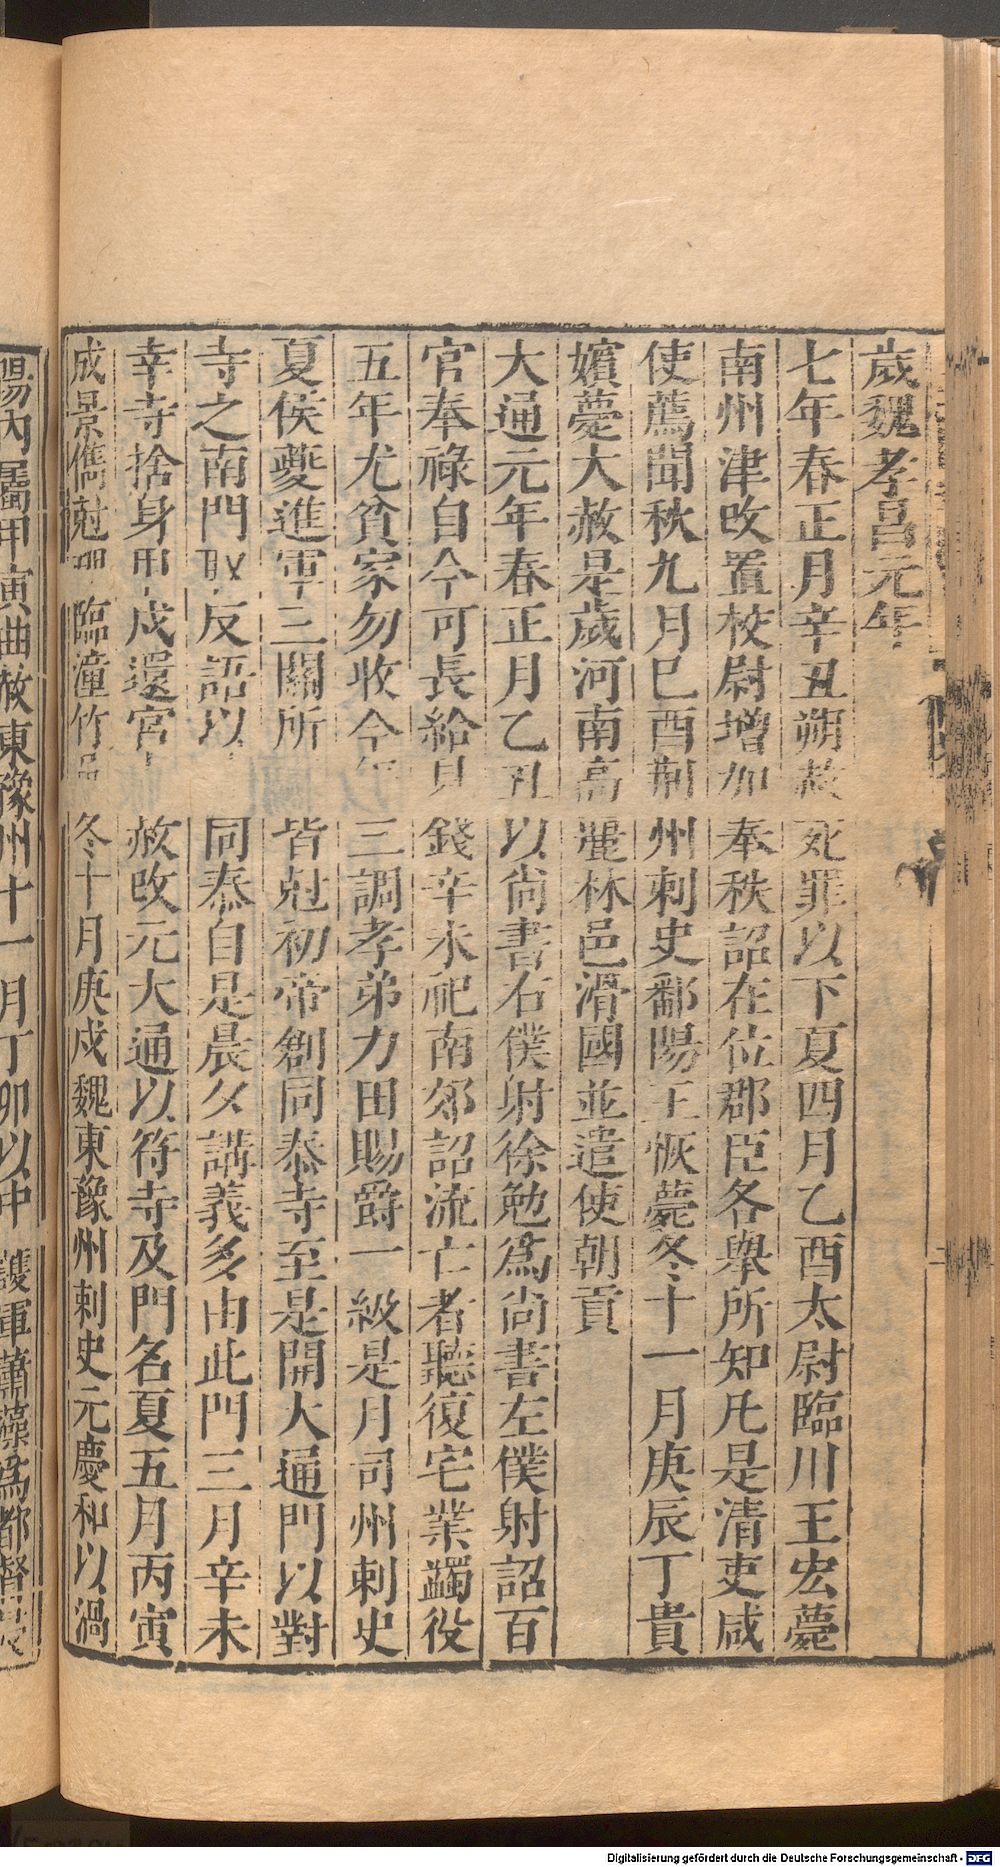 歲魏孝昌元年
七年春正月辛丑朔赦死罪以下夏四月乙酉太尉臨川王宏薨
南州津改置校尉增加奉秩詔在位郡臣各舉所知凡是清吏咸
使薦聞秋九月巳酉荆州刺史鄱陽王恢薨冬十一月庚辰丁貴
嬪薨大赦是歲河南高麗林邑滑國並遣使朝貢
大通元年春正月乙丑以尚書右僕射徐勉爲尚書左僕射詔百
官奉祿自今可長給見錢辛未祀南郊詔流亡者聽復宅業蠲役
五年尤貧家勿收今年三調孝弟力田賜爵一級是月司州刺史
夏侯夔進軍三關所皆尅初帝創同泰寺至是開大通門以對
寺之南門取反語以同泰自是晨夕講義多由此門三月辛未
幸寺捨身甲戌還宮赦改元大通以符寺及門名夏五月丙寅
成景雋尅臨潼竹邑冬十月庚戍魏東豫州刺史元慶和以渦
陽內屬甲寅曲赦東豫州十一月丁卯以中護軍蕭藻爲都督
Digitalisierung gefördert durch die Deutsche Forschungsgemeinschaft - DFG